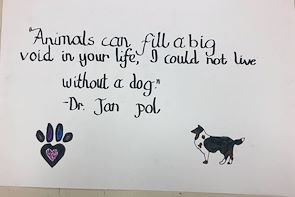 "Animals can fill a big
void in your life, I could not live
without a dog."
-Dr. Jan pol